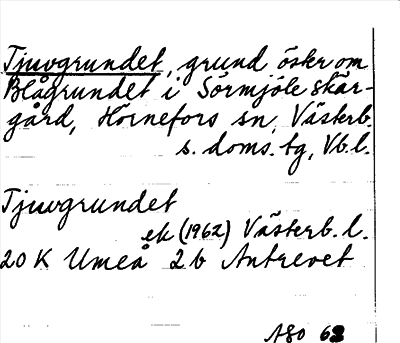 Tjuvgrundet, grund öster om
Blågrundet i Sörmjöle skär-
gård, Hörnefors sn, Västerb.
s. doms. tg, Vb. l.
Tjuvgrundet
ek (1962) Västerb. l.
20 K Umeå 2 b Antrevet
ASO 63